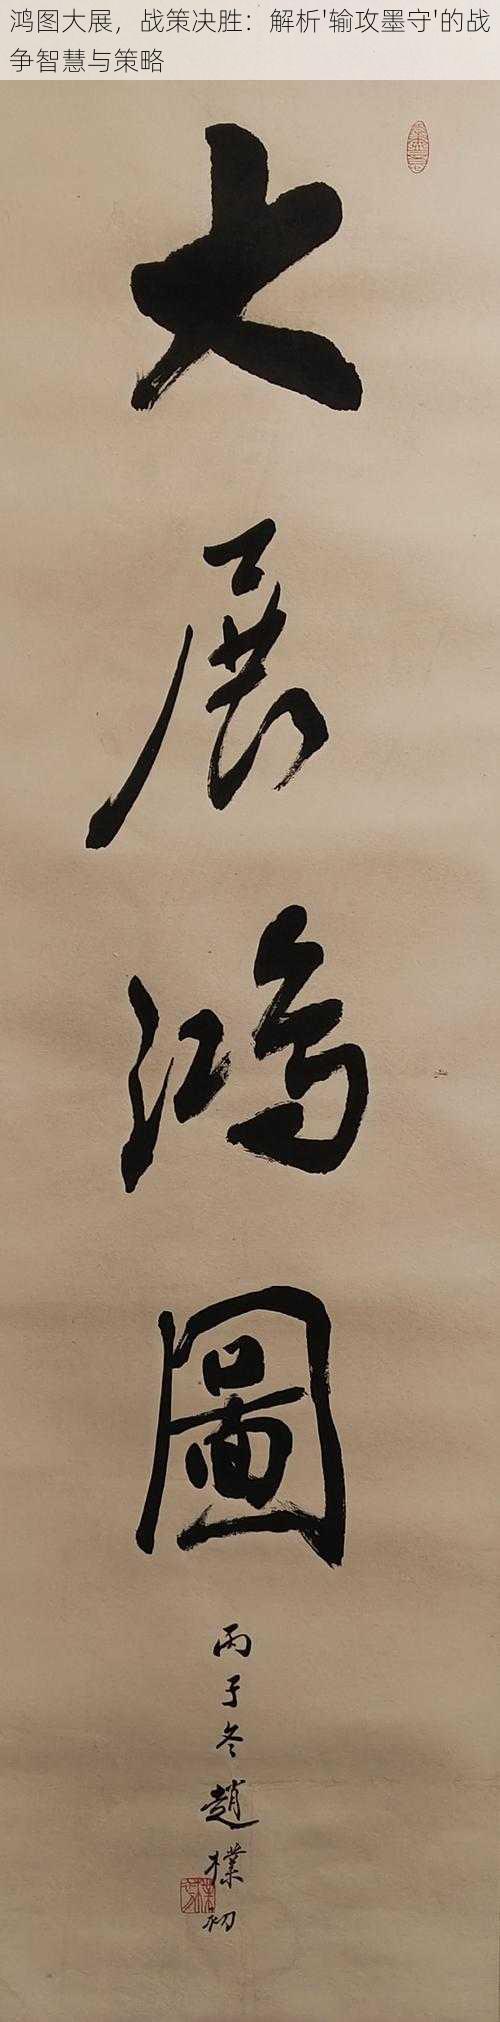 鸿图大展，战策决胜：解析'输攻墨守'的战
争智慧与策略
大展鴻圖
丙子冬趙樸初